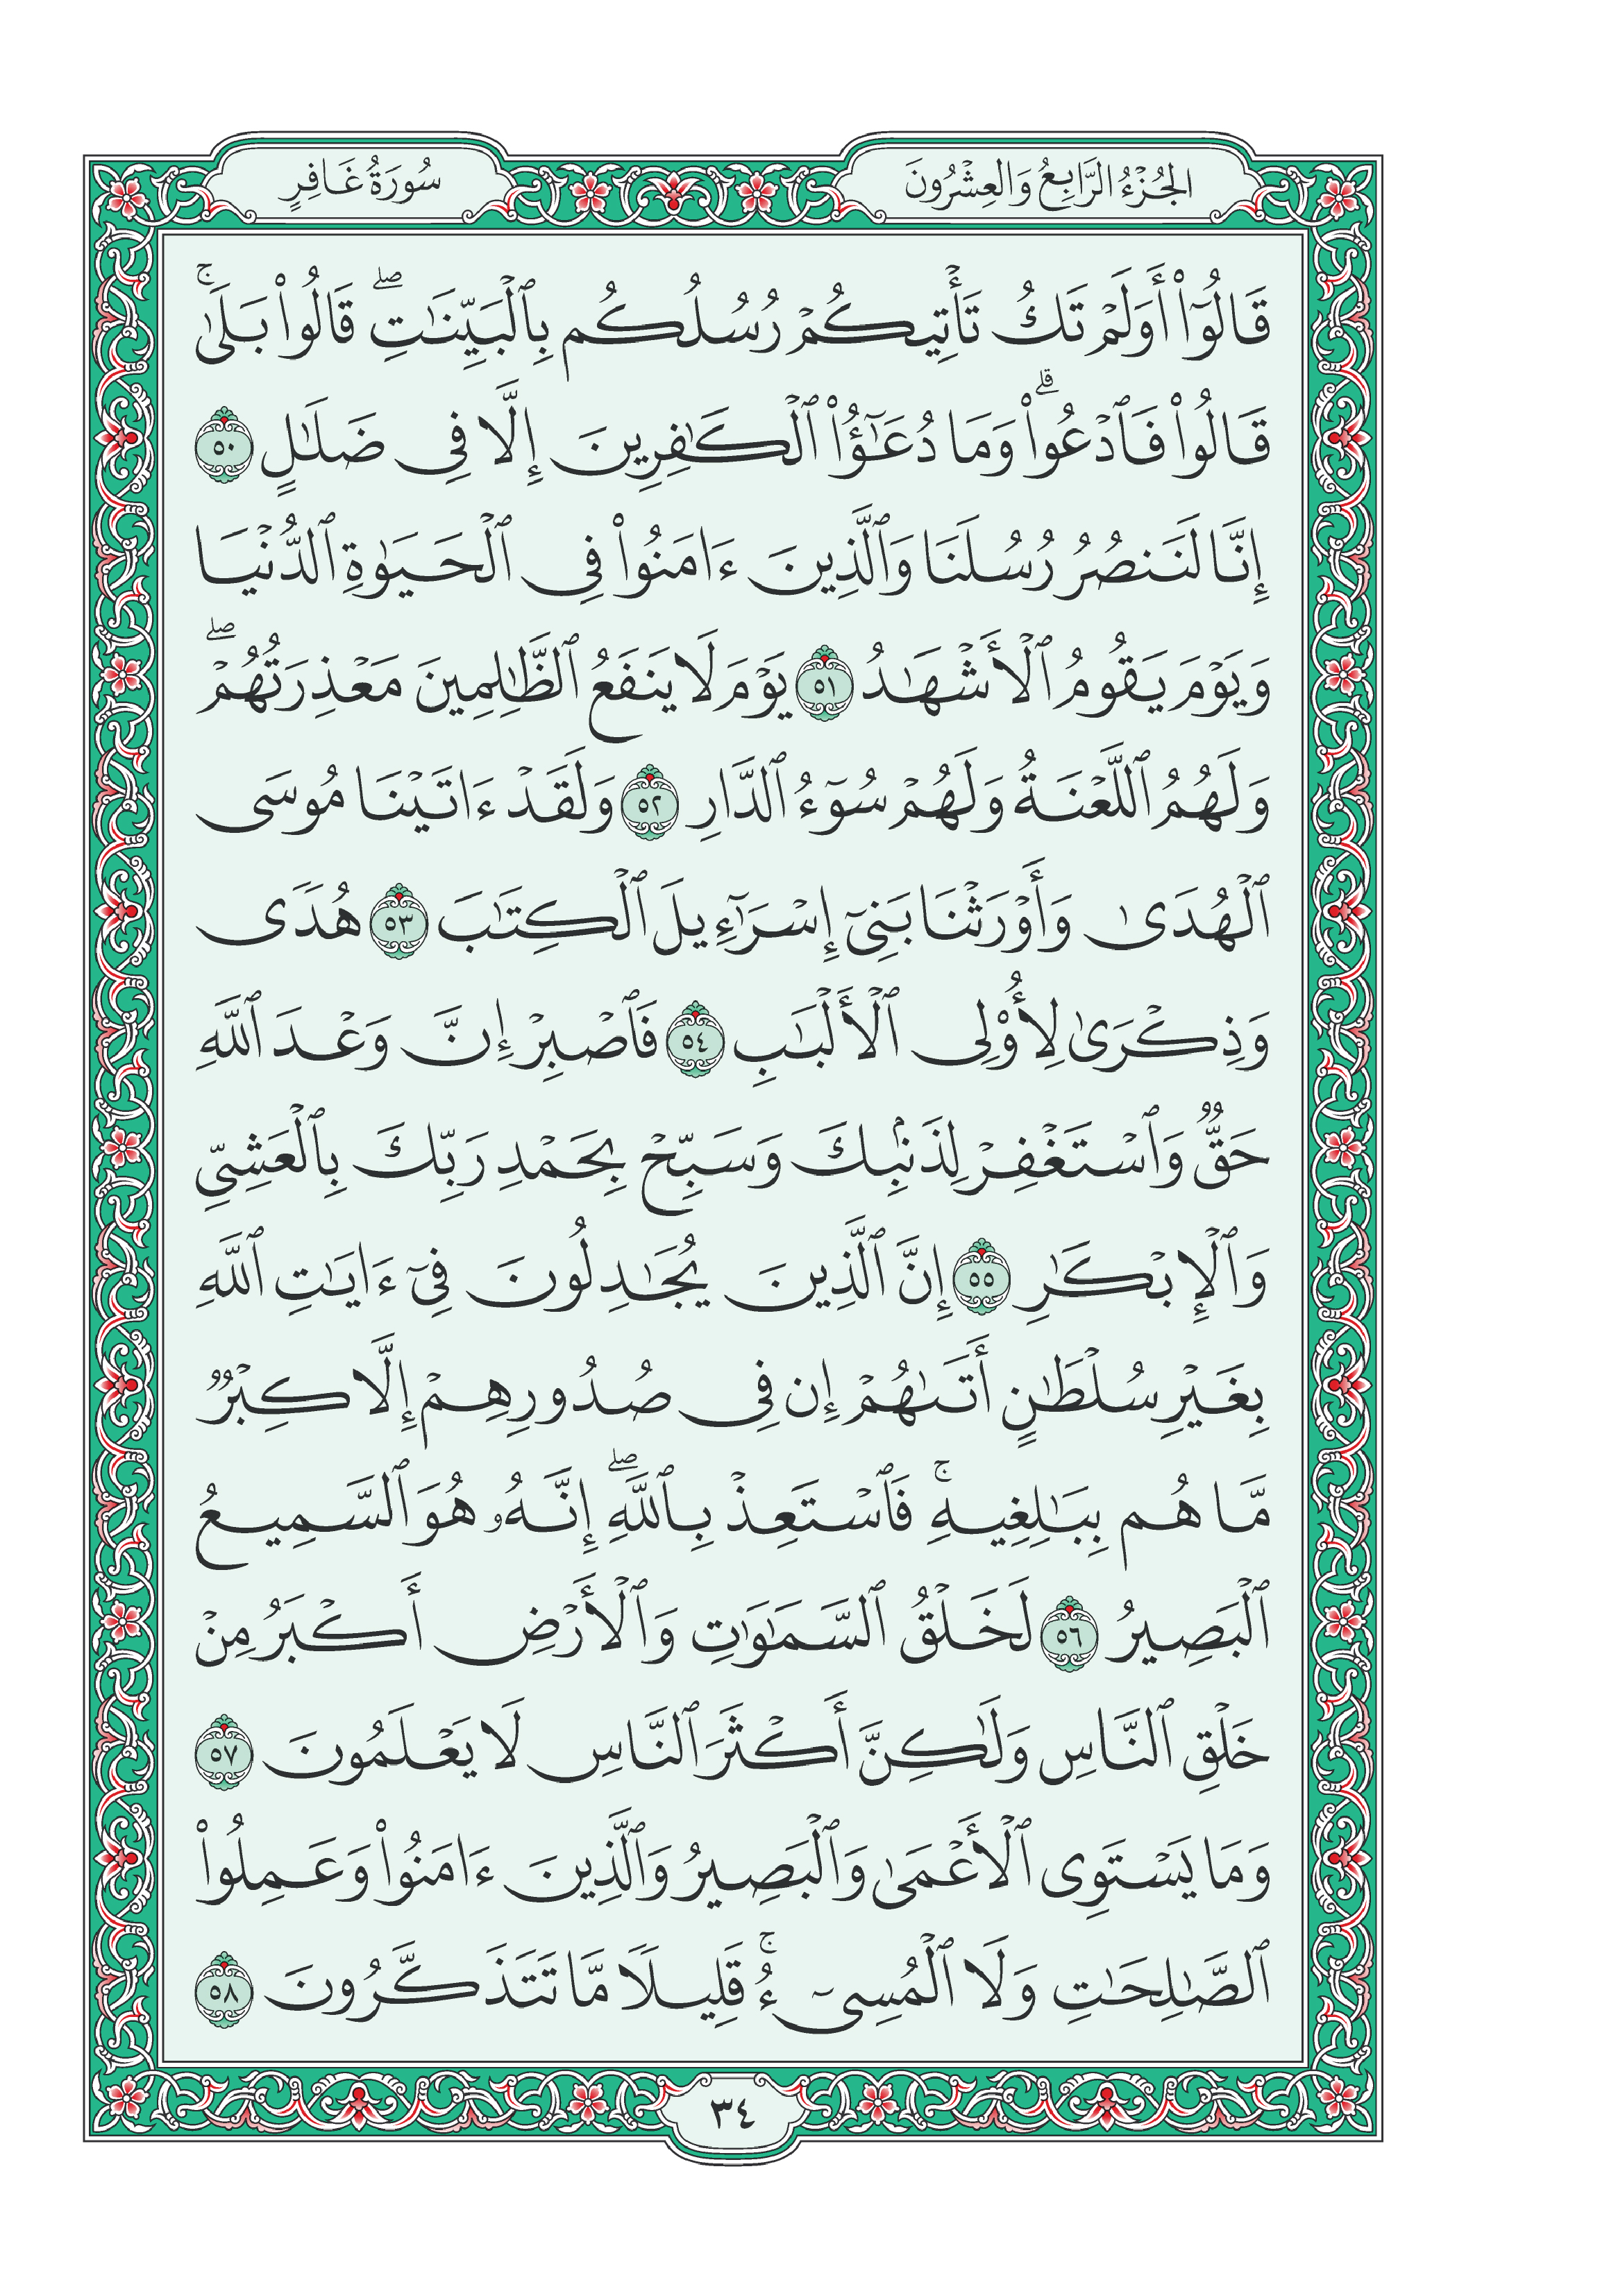 الجُزْءُ الرَّابِعُ وَالعِشْرُونَ
سُورَةُ غَافِرٍ
قَالُوٓا۟ أَوَلَمْ تَكُ تَأْتِيكُمْ رُسُلُكُم بِٱلْبَيِّنَٰتِ ۖ قَالُوا۟ بَلَىٰ ۚ
قَالُوا۟ فَٱدْعُوا۟ ۗ وَمَا دُعَٰٓؤُا۟ ٱلْكَٰفِرِينَ إِلَّا فِى ضَلَٰلٍ ٥٠
إِنَّا لَنَنصُرُ رُسُلَنَا وَٱلَّذِينَ ءَامَنُوا۟ فِى ٱلْحَيَوٰةِ ٱلدُّنْيَا
وَيَوْمَ يَقُومُ ٱلْأَشْهَٰدُ ٥١ يَوْمَ لَا يَنفَعُ ٱلظَّٰلِمِينَ مَعْذِرَتُهُمْ ۖ
وَلَهُمُ ٱللَّعْنَةُ وَلَهُمْ سُوٓءُ ٱلدَّارِ ٥٢ وَلَقَدْ ءَاتَيْنَا مُوسَى
ٱلْهُدَىٰ وَأَوْرَثْنَا بَنِىٓ إِسْرَٰٓءِيلَ ٱلْكِتَٰبَ ٥٣ هُدًى
وَذِكْرَىٰ لِأُو۟لِى ٱلْأَلْبَٰبِ ٥٤ فَٱصْبِرْ إِنَّ وَعْدَ ٱللَّهِ
حَقٌّ وَٱسْتَغْفِرْ لِذَنۢبِكَ وَسَبِّحْ بِحَمْدِ رَبِّكَ بِٱلْعَشِىِّ
وَٱلْإِبْكَٰرِ ٥٥ إِنَّ ٱلَّذِينَ يُجَٰدِلُونَ فِىٓ ءَايَٰتِ ٱللَّهِ
بِغَيْرِ سُلْطَٰنٍ أَتَىٰهُمْ إِن فِى صُدُورِهِمْ إِلَّا كِبْرٌ
مَّا هُم بِبَٰلِغِيهِ ۚ فَٱسْتَعِذْ بِٱللَّهِ ۖ إِنَّهُۥ هُوَ ٱلسَّمِيعُ
ٱلْبَصِيرُ ٥٦ لَخَلْقُ ٱلسَّمَٰوَٰتِ وَٱلْأَرْضِ أَكْبَرُ مِنْ
خَلْقِ ٱلنَّاسِ وَلَٰكِنَّ أَكْثَرَ ٱلنَّاسِ لَا يَعْلَمُونَ ٥٧
وَمَا يَسْتَوِى ٱلْأَعْمَىٰ وَٱلْبَصِيرُ وَٱلَّذِينَ ءَامَنُوا۟ وَعَمِلُوا۟
ٱلصَّٰلِحَٰتِ وَلَا ٱلْمُسِىٓءُ ۚ قَلِيلًا مَّا تَتَذَكَّرُونَ ٥٨
٣٤